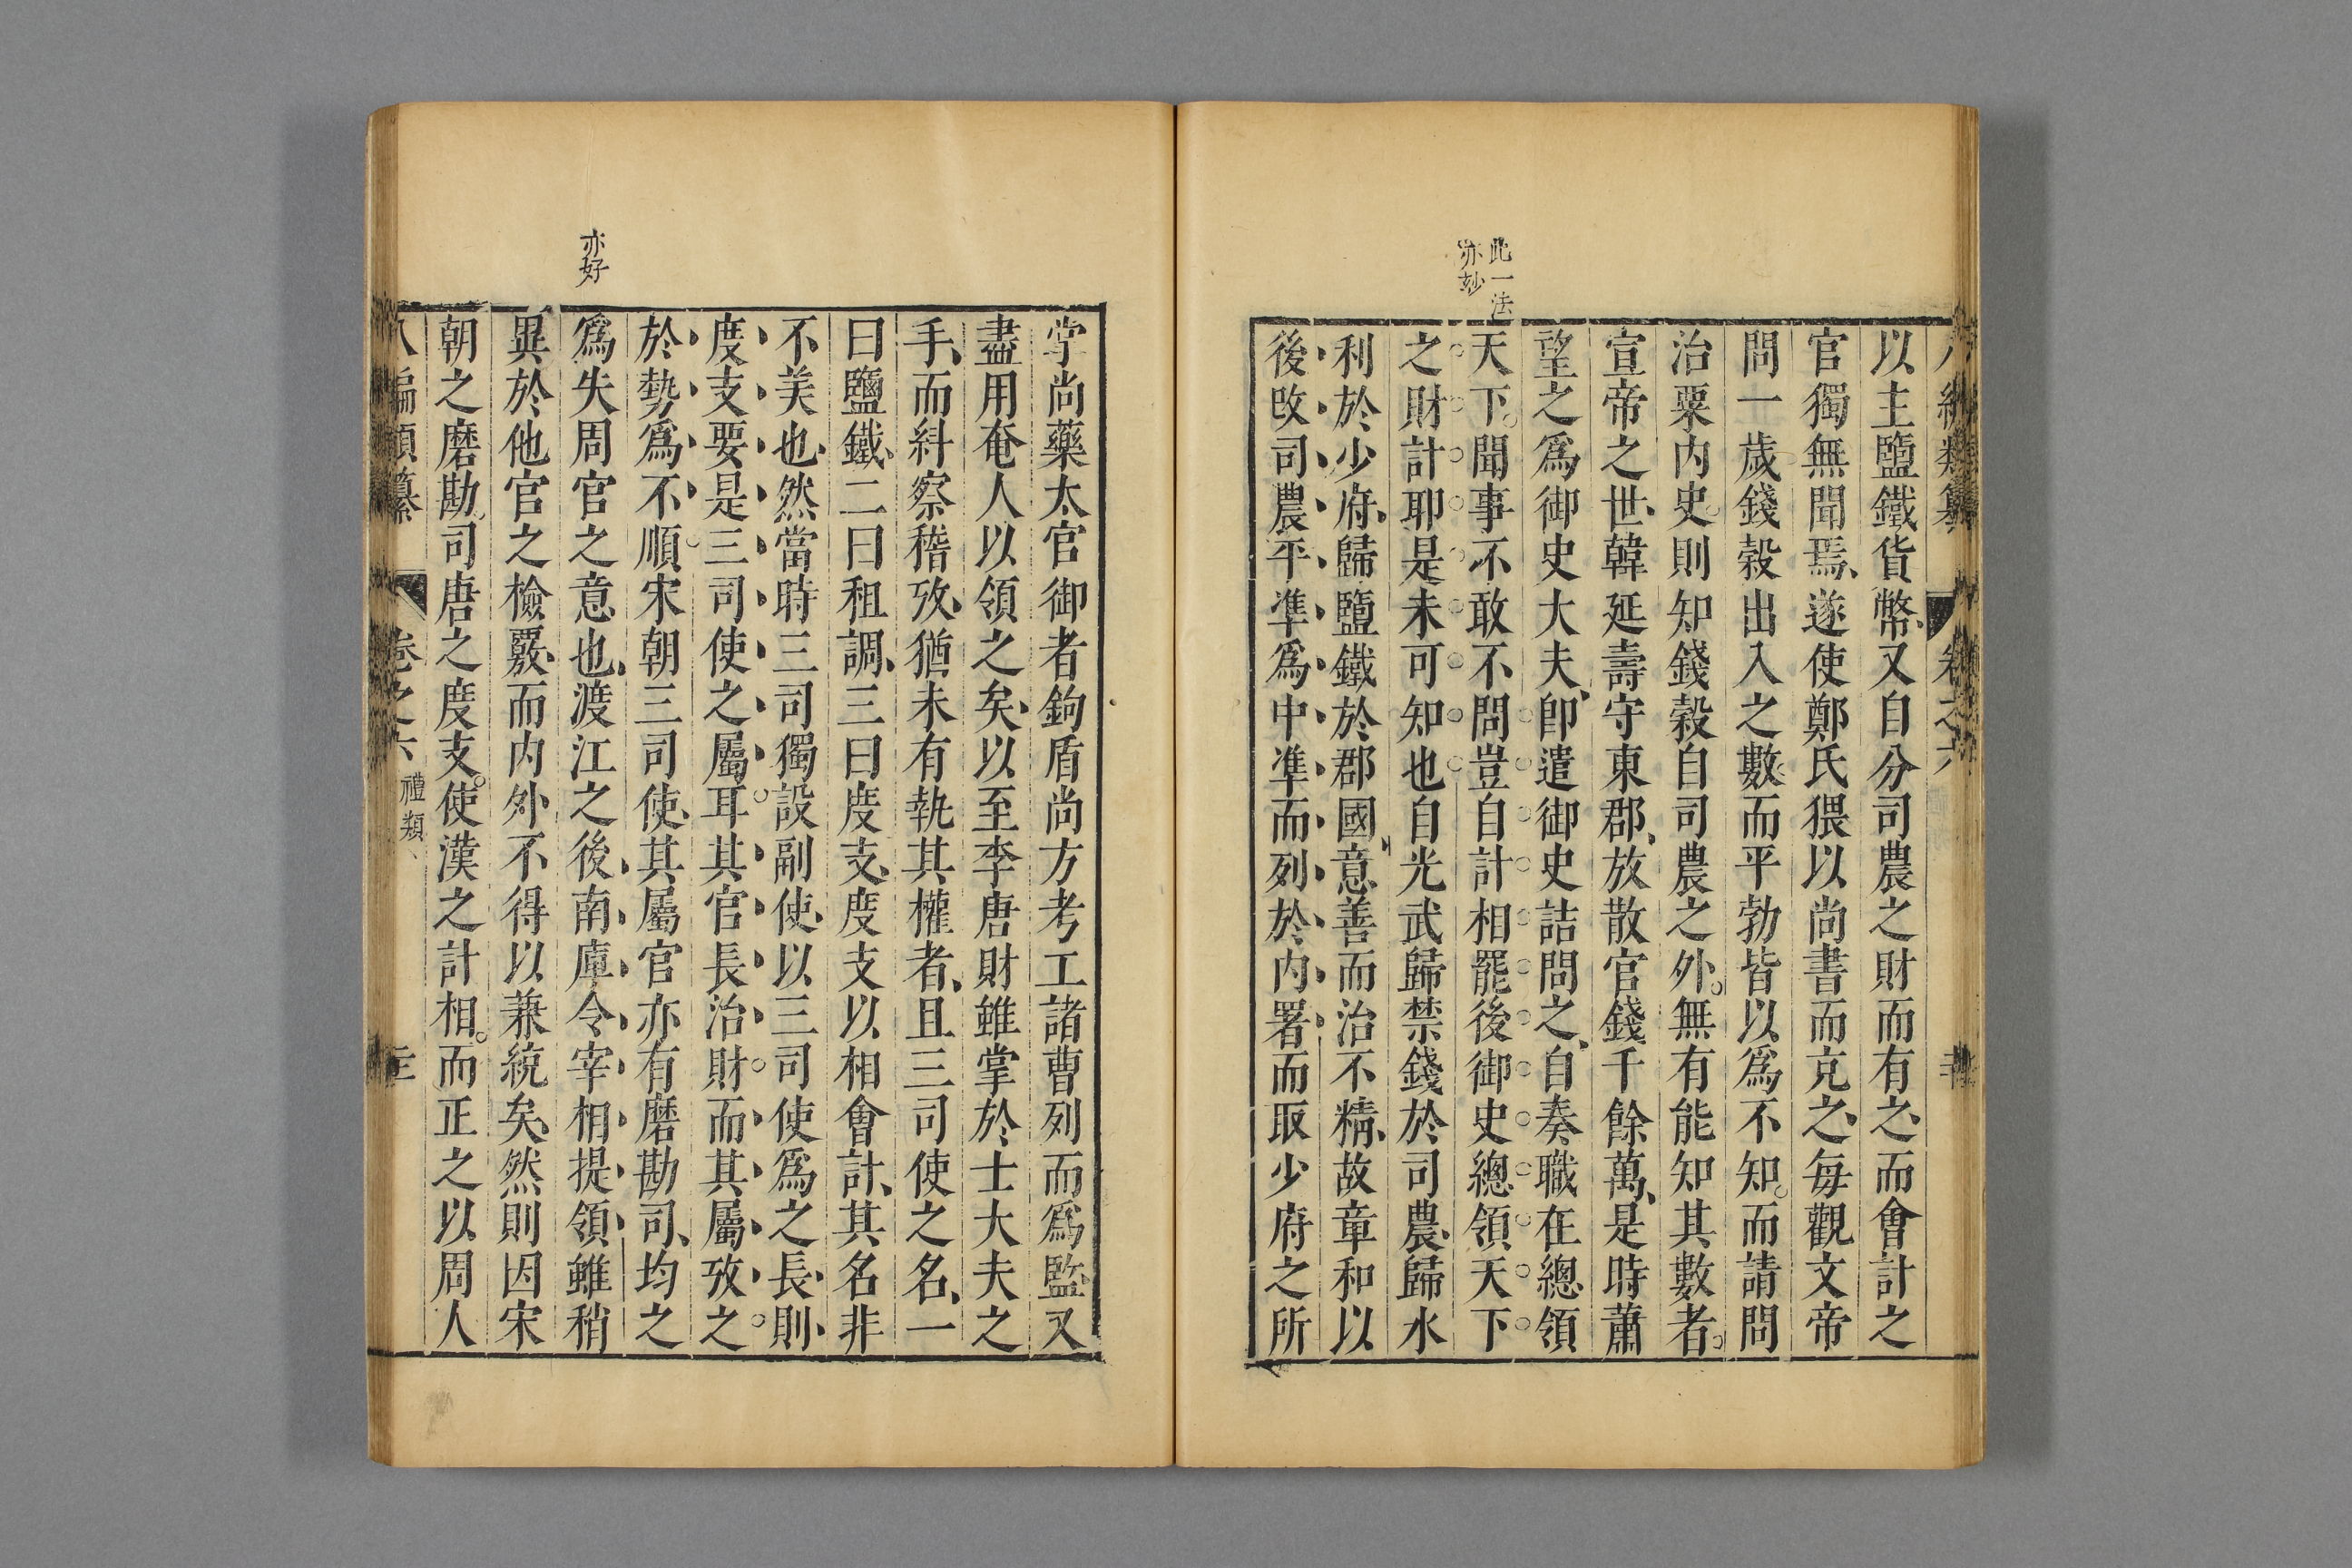 此一法
亦妙
以主鹽鐵貨幣又自分司農之財而有之而會計之
官獨無聞焉遂使鄭氏猥以尚書而克之每觀文帝
問一歲錢穀出入之數而平勃皆以爲不知而請問
治粟内史則知錢穀自司農之外無有能知其數者
宣帝之世韓延壽守東郡放散官錢千餘萬是時蕭
望之爲御史大夫卽遣御史詰問之自奏職在總領
天下聞事不敢不問豈自計相罷後御史總領天下
之財計耶是未可知也自光武歸禁錢於司農歸水
利於少府歸鹽鐵於郡國意善而治不精故章和以
後改司農平準爲中準而列於内署而取少府之所
亦好
掌尚藥太官御者鉤盾尚方考工諸曹列而爲監又
盡用奄人以領之矣以至李唐財雖掌於士大夫之
手而糾察稽攷猶未有執其權者且三司使之名一
曰鹽鐵二曰租調三曰度支度支以相會計其名非
不美也然當時三司獨設副使以三司使爲之長則
度支要是三司使之屬耳其官長治財而其屬攷之
於勢爲不順宋朝三司使其屬官亦有磨勘司均之
爲失周官之意也渡江之後南庫令宰相提領雖稍
異於他官之檢覈而内外不得以兼統矣然則因宋
朝之磨勘司唐之度支使漢之計相而正之以周人
八編類纂 卷之六 禮類